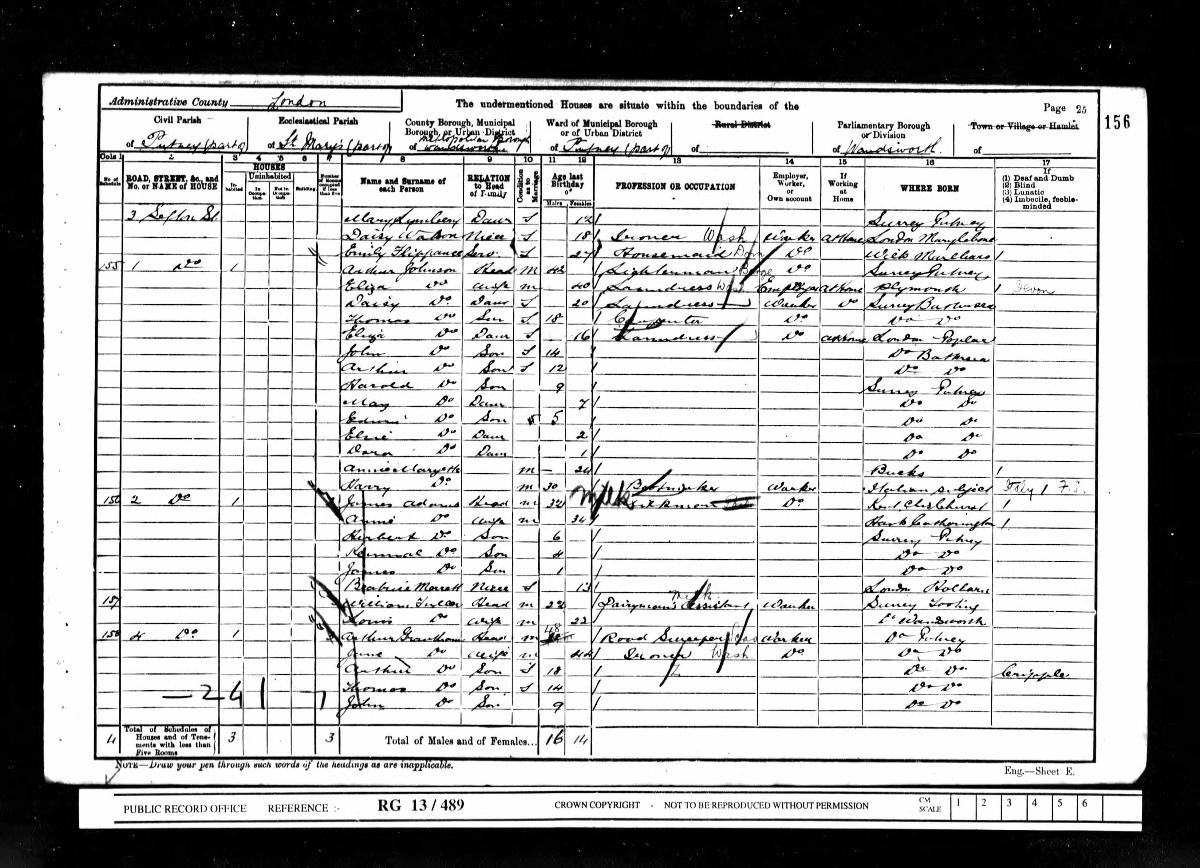 Administrative County London
The undermentioned Houses are situate within the boundaries of the
Page 25
156
Civil Parish
of Putney (part of)
Ecclesiastical Parish
of St Mary's (part of)
County Borough, Municipal Borough, or Urban District
of Metropolitan Borough Wandsworth
Ward of Municipal Borough or of Urban District
of Putney (part of)
Rural District
of
Parliamentary Borough or Division
of Wandsworth
Town or Village or Hamlet
of
Cols 1 2 3 4 5 6 7 8 9 10 11 12 13 14 15 16 17
No. of Schedule
ROAD, STREET, &c., and No. or NAME of HOUSE
HOUSES
Inhabited
Uninhabited
In Occupation
Not in Occupation
Building
Number of Rooms occupied if less than five
Name and Surname of each Person
RELATION to Head of Family
Condition as to Marriage
Age last Birthday of
Males Females
PROFESSION OR OCCUPATION
Employer, Worker, or Own account
If Working at Home
WHERE BORN
If
(1) Deaf and Dumb
(2) Blind
(3) Lunatic
(4) Imbecile, feeble-minded
3 Sefton St Mary Daur S 12 Surrey Putney
Daisy Watson Niece S 18 Ironer Wash Worker At Home London Marylebone
Emily S 27 Housemaid Dom Do Wilts
155 1 Do 1 Arthur Johnson Head M 42 Lighterman Barge Do Surrey Putney
Eliza Do Wife M 40 Laundress Wash Employer At Home Plymouth Devon
Daisy Do Daur S 20 Laundress Worker Do Surrey Battersea
Thomas Do Son S 18 Carpenter Do Do Do
Eliza Do Daur S 16 Laundress Do At Home London Poplar
John Do Son S 14 Do Battersea
Arthur Do Son S 12 Do Do
Harold Do Son 9 Surrey Putney
May Do Daur 7 Do Do
Edwin Do Son S 5 Do Do
Elsie Do Daur 2 Do Do
Dora Do Daur 1 Do Do
Annie M 24 Bucks
Harry Do M 30 Worker Italian Subject Italy F.S.
156 2 Do 1 James Adams Head M 32 Milk Milkman Do Kent Chislehurst
Annie Do Wife M 34 Hants Catherington
Herbert Do Son 6 Surrey Putney
Do Son 4 Do Do
James Do Son 1 Do Do
Beatrice Niece S 13 London Holborn
157 William Head M 22 Dairyman's Assistant Milk Worker Surrey Tooting
Do Wife M 22 Wandsworth
158 4 Do 1 Arthur Grantham Head M 48 Road Sweeper Worker Do Putney
Jane Do Wife M 44 Ironer Wash Do Do Do
Arthur Do Son S 18 Do Do Cripple
Thomas Do Son S 14 Do Do
John Do Son 9 Do Do
—2 4 1 7
4 Total of Schedules of Houses and of Tenements with less than Five Rooms 3 3 Total of Males and of Females... 16 14
NOTE—Draw your pen through such words of the headings as are inapplicable.
Eng.—Sheet E.
PUBLIC RECORD OFFICE REFERENCE :- RG 13/489 CROWN COPYRIGHT - NOT TO BE REPRODUCED WITHOUT PERMISSION CM SCALE 1 2 3 4 5 6